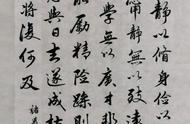 靜以脩身儉以
寧靜無以致遠
學無以廣才非
能勵精險躁則
與日去遂成枯
將復何及 諸葛